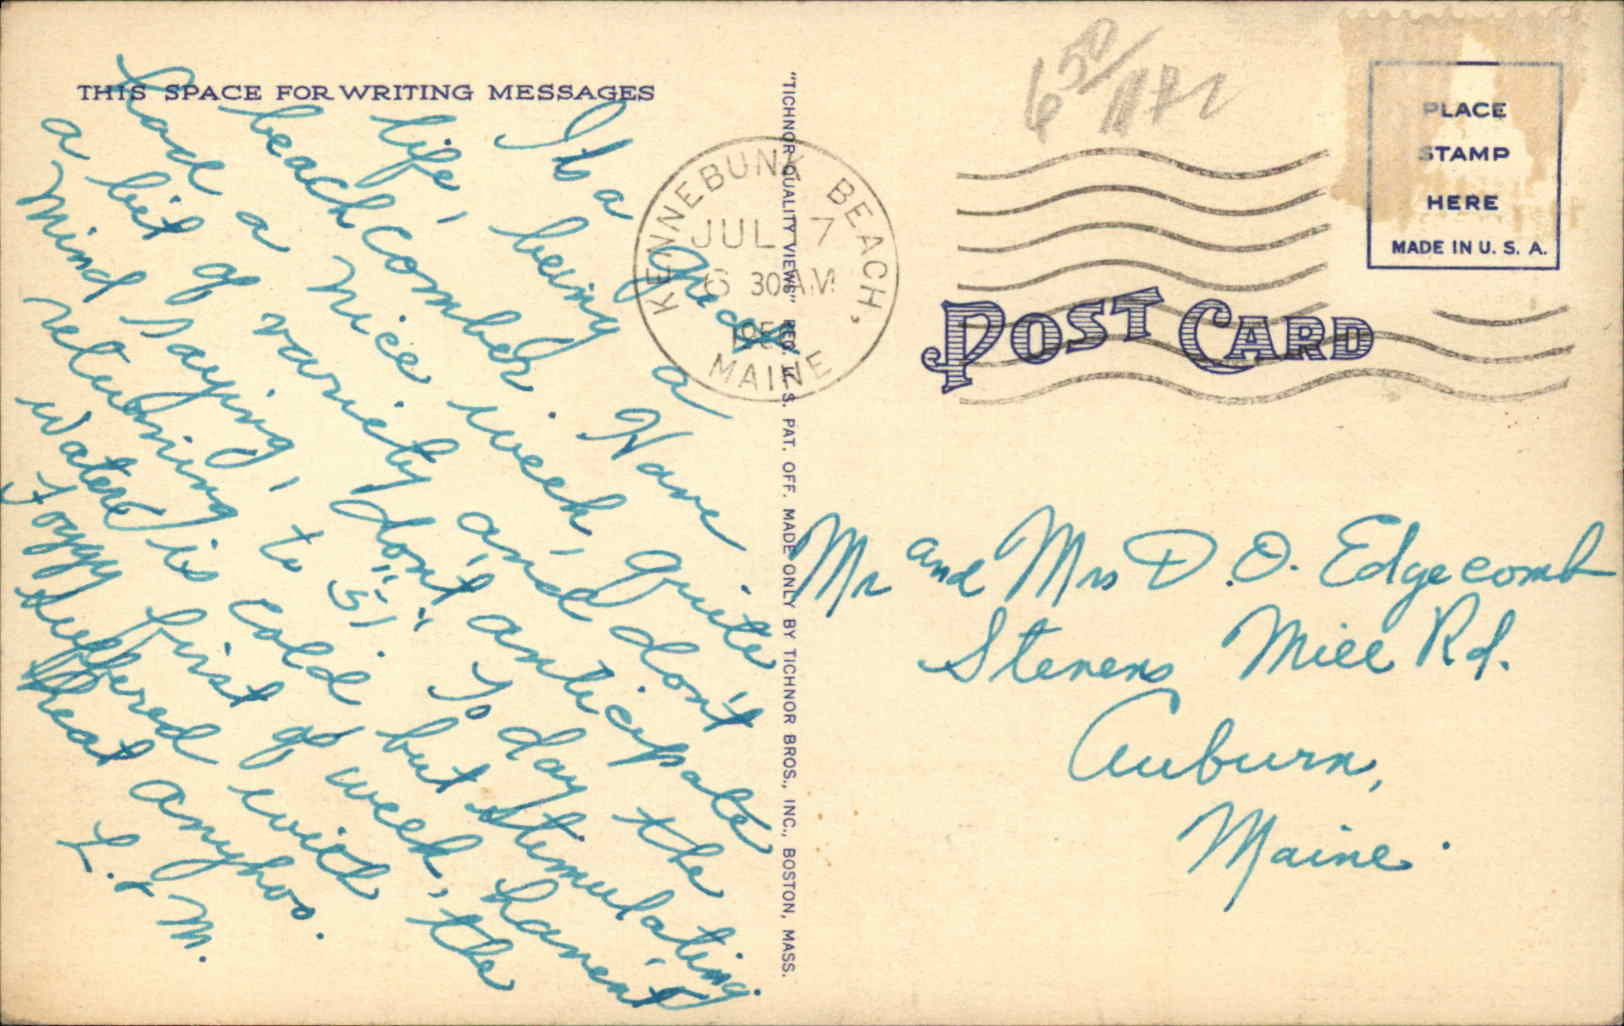 THIS SPACE FOR WRITING MESSAGES
Its a great
life, being a
beachcomber. Have
had a nice week, quite
a bit of variety and don't
mind saying, don't anticipate
returning to To day the
water is cold but stimulating.
Foggy first of week, haven't
suffered with the
heat anyhoo.
L. & M.
"TICHNOR QUALITY VIEWS" REG. U. S. PAT. OFF. MADE ONLY BY TICHNOR BROS., INC., BOSTON, MASS.
KENNEBUNK BEACH,
JUL 17
6 30 AM
MAINE
6 50/
PLACE
STAMP
HERE
MADE IN U. S. A.
POST CARD
Mr and Mrs D. O. Edgecomb
Stevens Mill Rd.
Auburn,
Maine.